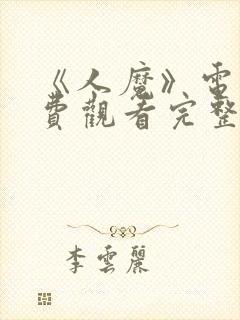 《人魔》電
費觀看完整
李雲麗